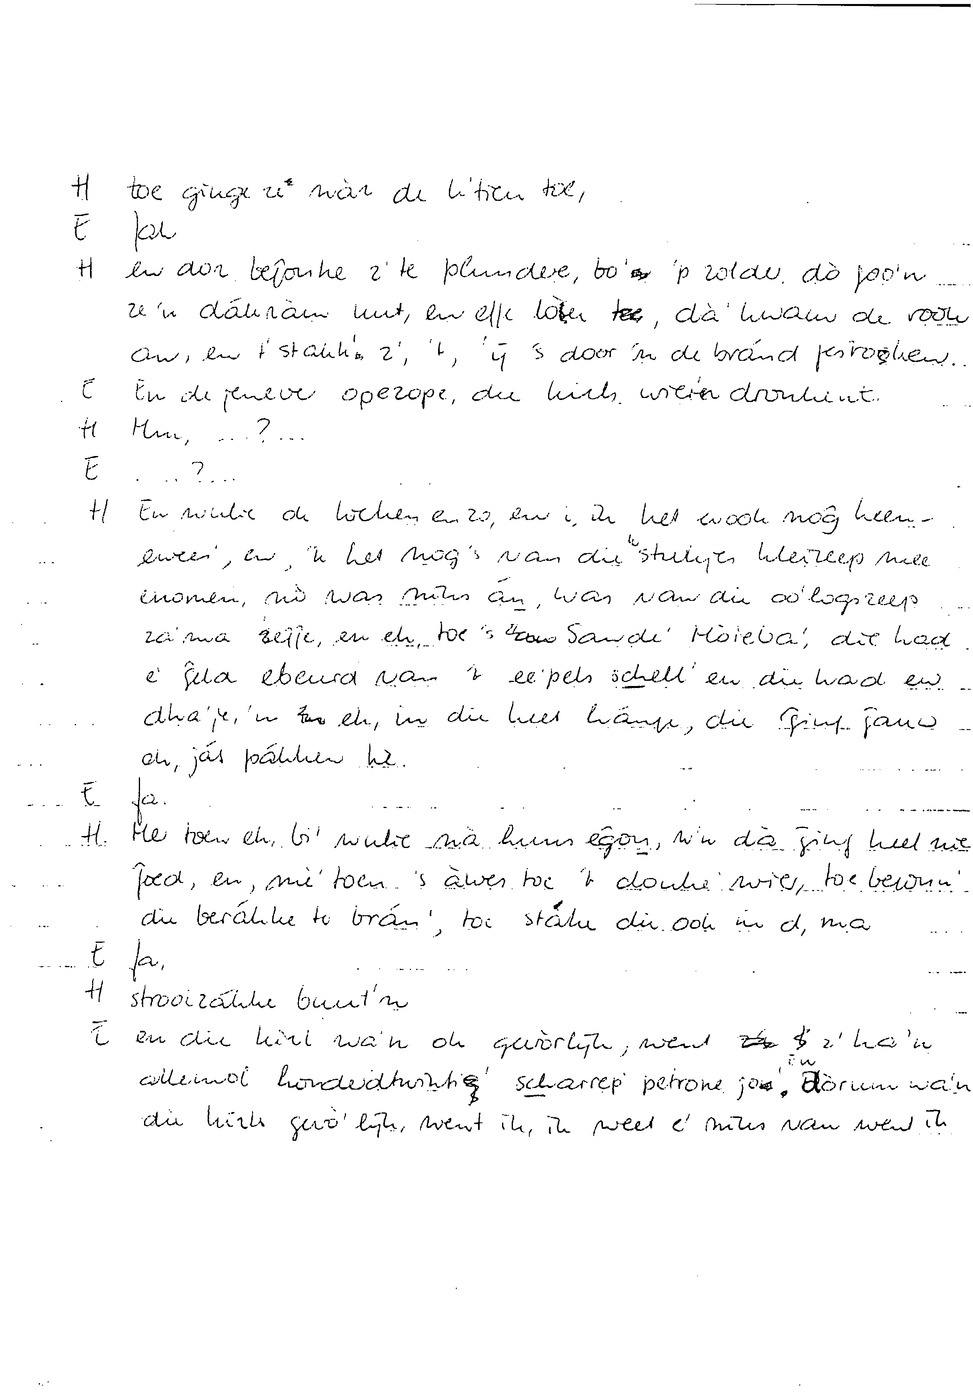 H toe ginge ze nàr de li'tien toe,
E Ja
H en dor begonne z' te plundere, bo' 'p zolder, dò joo'n
ze 'n dákràm uut, en effe lòter, dà' kwam de rook
an, en t' stakk'n z', 't, 'ij 's door 'n de bránd jestroken.
E En de jenever opezope, die kirls wièr'n dronken.
H Hm, ...?...
E ...?...
H En wulie de kocken enzo, en i, ik het erook nòg heen-
ewees', en, 'k het nog 's van die stukjes kleizeep mee
enomen, nò was niks án, was van die oo'logszeep
za'ma zeffe, en eh, toe 's Sande' Mòieba', die had
e' geld ebeurd van 't ee'pels schell' en die had en
dha'je, 'n eh, in die keet hánge, die ging gauw
eh, jás pákken hè.
E Ja.
H He toen eh, bi' wulie nà huus egòn, w'n dà ging heel nie
goed, en, nie' toen 's àwes toe 't donke' wier, toe begonn'
die berákke te brán', toe stáke die ook in d, ma
E Ja,
H strooizákke buut'n
E en die kirls wa'n ok gevòrlijk, went z' ha'n
allemol honderdtwintig scharrep' petrone in, Dòrum wa'n
die kirls gevò'lijk, went ik, ik weet e' niks van went ik